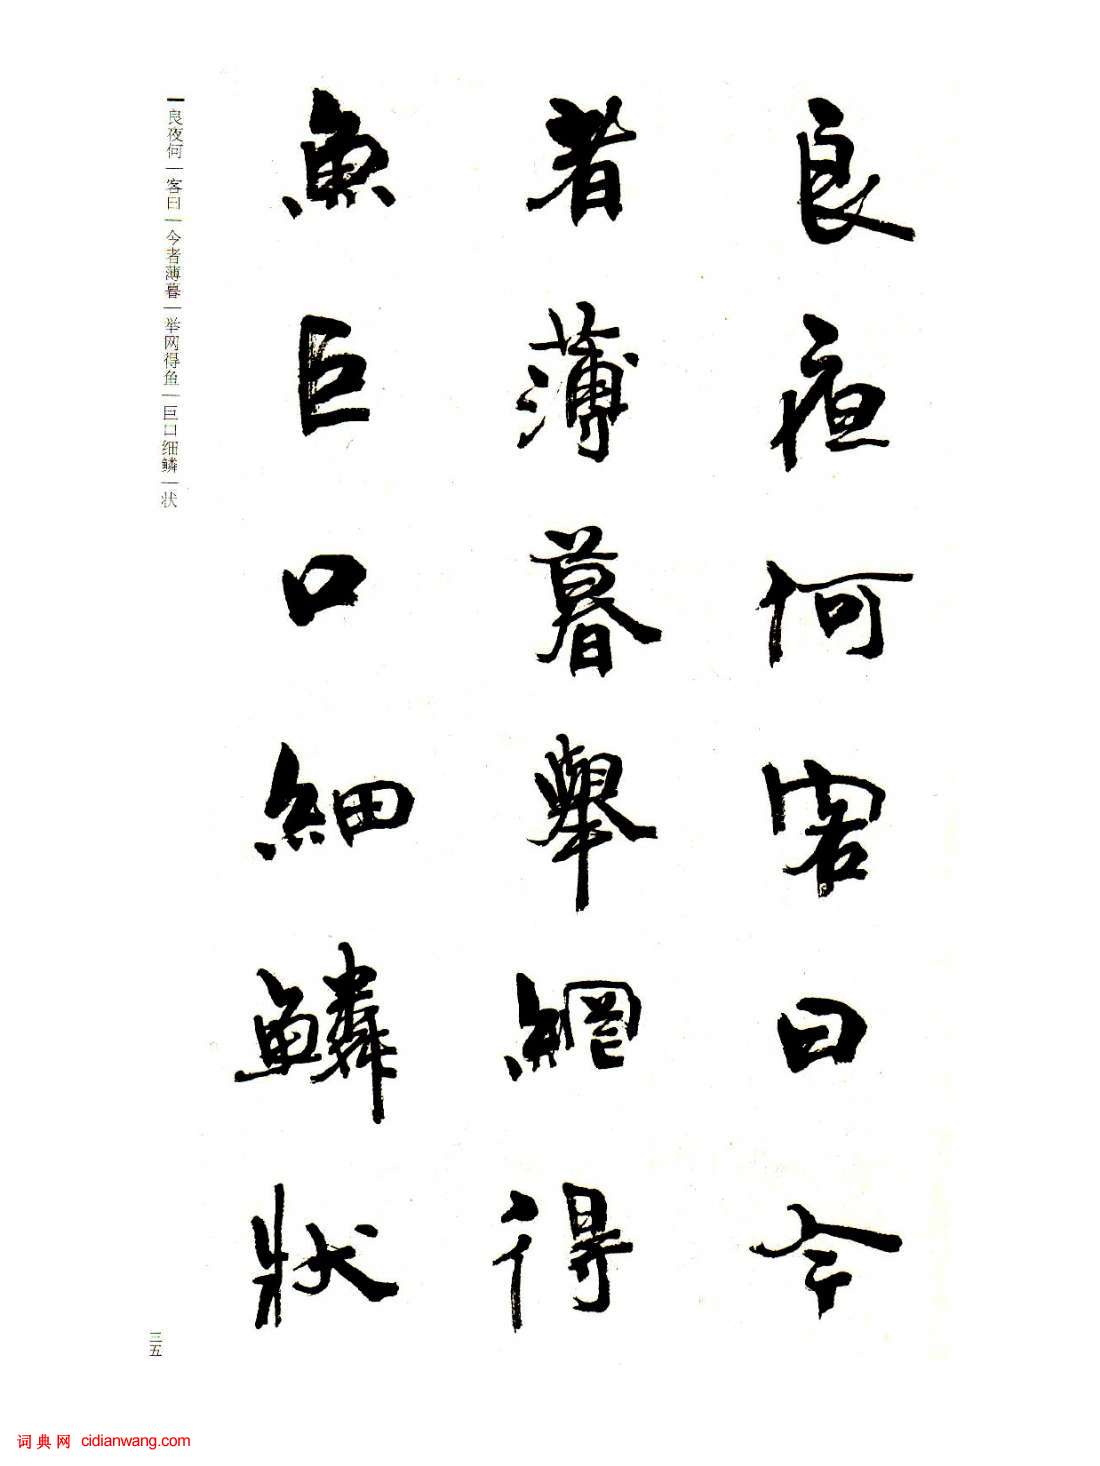 良夜何客曰今
者薄暮舉網得
魚巨口細鱗狀
良夜何|客曰|今者薄暮|举网得鱼|巨口细鳞|状
三五
词典网 cidianwang.com